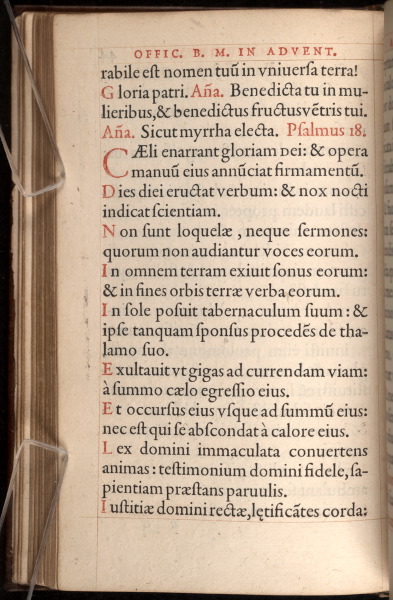 OFFIC. B. M. IN ADVENT.
rabile eſt nomen tuũ in vniuerſa terra!
Gloria patri. Aña. Benedicta tu in mu-
lieribus,& benedictus fructus vẽtris tui.
Aña. Sicut myrrha electa. Pſalmus 18.
CÆli enarrant gloriam DEI: & opera
manuũ eius annũciat firmamentũ.
Dies diei eructat verbum: & nox nocti
indicat ſcientiam.
Non ſunt loquelæ, neque ſermones:
quorum non audiantur voces eorum.
In omnem terram exiuit ſonus eorum:
& in fines orbis terræ verba eorum.
In ſole poſuit tabernaculum ſuum: &
ipſe tanquam ſponſus procedẽs de tha-
lamo ſuo.
Exultauit vt gigas ad currendam viam:
à ſummo cælo egreſſio eius.
Et occurſus eius vſque ad ſummũ eius:
nec eſt qui ſe abſcondat à calore eius.
Lex domini immaculata conuertens
animas: teſtimonium domini fidele, ſa-
pientiam præſtans paruulis.
Iuſtitiæ domini rectæ, lętificãtes corda: